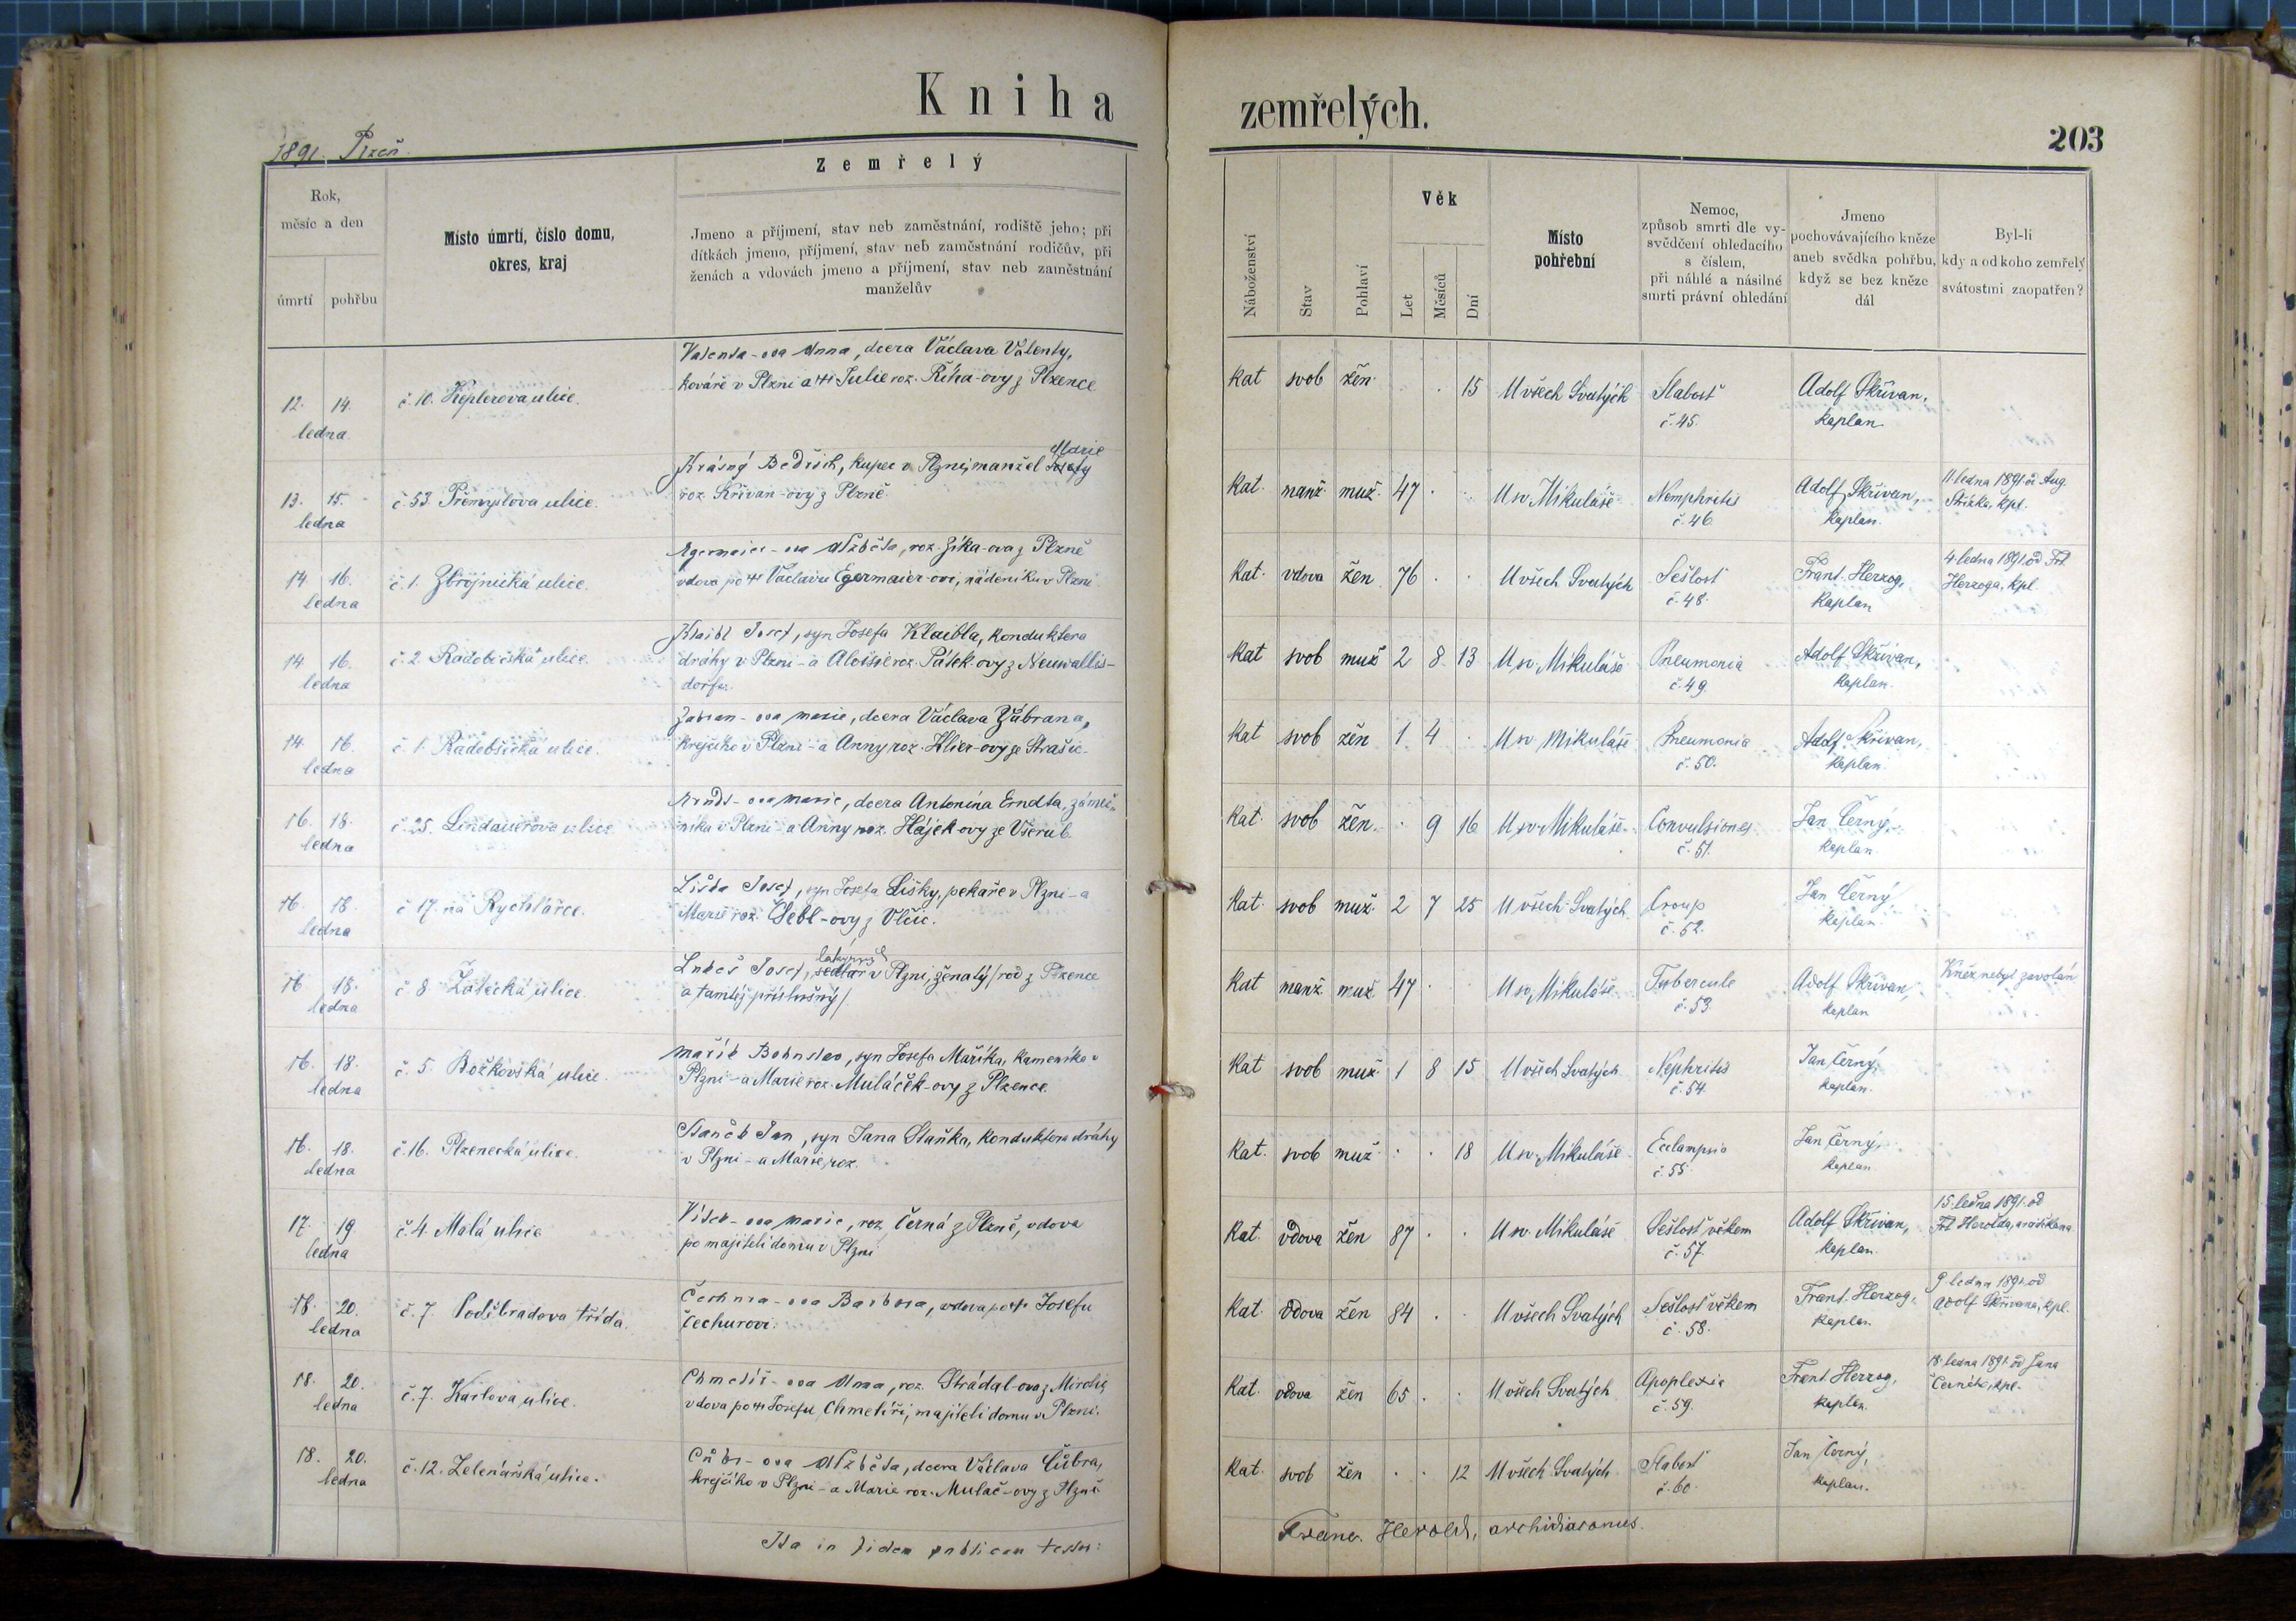 Kniha zemřelých.
203
1891. Plzeň.
Rok, měsíc a den
úmrtí
pohřbu
Místo úmrtí, číslo domu, okres, kraj
Zemřelý
Jmeno a příjmení, stav neb zaměstnání, rodiště jeho; při
dítkách jmeno, příjmení, stav neb zaměstnání rodičův, při
ženách a vdovách jmeno a příjmení, stav neb zaměstnání
manželův
Náboženství
Stav
Pohlaví
Věk
Let
Měsíců
Dní
Místo pohřební
Nemoc,
způsob smrti dle vy-
svědčení ohledacího
s číslem,
při náhlé a násilné
smrti právní ohledání
Jmeno
pochovávajícího kněze
aneb svědka pohřbu,
když se bez kněze
dál
Byl-li
kdy a od koho zemřelý
svátostmi zaopatřen?
12. 14. ledna
č. 10. Keplerova ulice.
Valenta-ova Anna, dcera Václava Valenty,
kováře v Plzni a Julie roz. Říha-ovy z Plzence
Kat svob žen. 15 U všech Svatých
Slabost č. 45.
Adolf Skřivan, kaplan
13. 15. ledna
č. 53. Přemyslova ulice.
Krásný Bedřich, kupec v Plzni, manžel Josefy Marie
roz. Křivan-ovy z Plzně
Kat. manž. muž. 47 U sv. Mikuláše
Nemphritis č. 46
Adolf Skřivan, kaplan.
11. ledna 1891 od Aug.
Střízka, kpl.
14. 16. ledna
č. 1. Zbrojnická ulice.
Egermaier-ova Alžběta, roz. Zíka-ova z Plzně
vdova po Václavu Egermaier-ovi, nádeníku v Plzni
Kat. vdova žen 76 U všech Svatých
Sešlost č. 48.
Frant. Herzog, kaplan
4. ledna 1891. od Frt.
Herzoga, kpl.
14 16. ledna
č. 2. Radobičická ulice.
Klaibl Josef, syn Josefa Klaibla, konduktera
dráhy v Plzni - a Aloisie roz. Pátek-ovy z Neuwallis-
dorfu.
Kat svob muž 2 8 13 U sv. Mikuláše
Pneumonia č. 49.
Adolf Skřivan, kaplan.
14 16. ledna
č. 1. Radobičická ulice.
Zabran-ova Marie, dcera Václava Zábrana,
krejčího v Plzni - a Anny roz. Klier-ovy ze Strašic.
Kat svob žen 1 4 U sv. Mikuláše
Pneumonia č. 50.
Adolf Skřivan, kaplan.
16. 18. ledna
č. 25. Lindauerova ulice
Erndt-ova Marie, dcera Antonína Erndta, zámeč-
níka v Plzni - a Anny roz. Hájek-ovy ze Všerub.
Kat. svob žen. 9 16 U sv. Mikuláše
Convulsiones č. 51.
Jan Černý, kaplan.
16. 18. ledna
č. 17. na Rychtářce.
Liška Josef, syn Josefa Lišky, pekaře v Plzni - a
Marie roz. Šebl-ovy z Vlčic.
Kat. svob muž. 2 7 25 U všech Svatých
Croup č. 52.
Jan Černý, kaplan.
16 18. ledna
č. 8. Žatecká ulice.
Lukeš Josef, sedlář v Plzni, ženatý /rod z Plzence
a tamtéž příslušný/
Kat manž. muž. 47 U sv. Mikuláše
Tubercule č. 53.
Adolf Skřivan, kaplan
Kněz nebyl zavolán
16. 18. ledna
č. 5. Božkovská ulice.
Mařík Bohuslav, syn Josefa Maříka, kameníka v
Plzni - a Marie roz. Muláček-ovy z Plzence.
Kat svob muž. 1 8 15 U všech Svatých
Nephritis č. 54.
Jan Černý, kaplan.
16. 18. ledna
č. 16. Plzenecká ulice.
Staněk Jan, syn Jana Staňka, konduktera dráhy
v Plzni - a Marie, roz.
Kat. svob muž. 18 U sv. Mikuláše
Eclampsia č. 55
Jan Černý, kaplan
17. 19. ledna
č. 4. Malá ulice
Vítek-ova Marie, roz. Černá z Plzně, vdova
po majiteli domu v Plzni
Kat. vdova žen 87 U sv. Mikuláše
Sešlost věkem č. 57.
Adolf Skřivan, kaplan.
15. ledna 1891. od
Frt. Herolda,
18. 20. ledna
č. 7. Poděbradova třída.
Čechura-ova Barbora, vdova po Josefu
Čechurovi.
Kat. vdova žen 84 U všech Svatých
Sešlost věkem č. 58.
Frant. Herzog, kaplan.
9. ledna 1891. od
Adolf Skřivana, kpl.
18. 20. ledna
č. 7. Karlova ulice.
Chmelíř-ova Anna, roz. Strádal-ova z
vdova po Josefu Chmelíři, majiteli domu v Plzni.
Kat. vdova žen 65 U všech Svatých
Apoplexia č. 59.
Frant. Herzog, kaplan.
18. ledna 1891. od Jana
18. 20. ledna
č. 12. Zelenářská ulice.
Cůbr-ova Alžběta, dcera Václava Cůbra,
krejčího v Plzni - a Marie roz. Mulač-ovy z Plzně
Kat. svob žen 12 U všech Svatých
Slabost č. 60.
Jan Černý, kaplan.
Ita in fidem publicam testor:
Franc. Herold, archidiaconus.